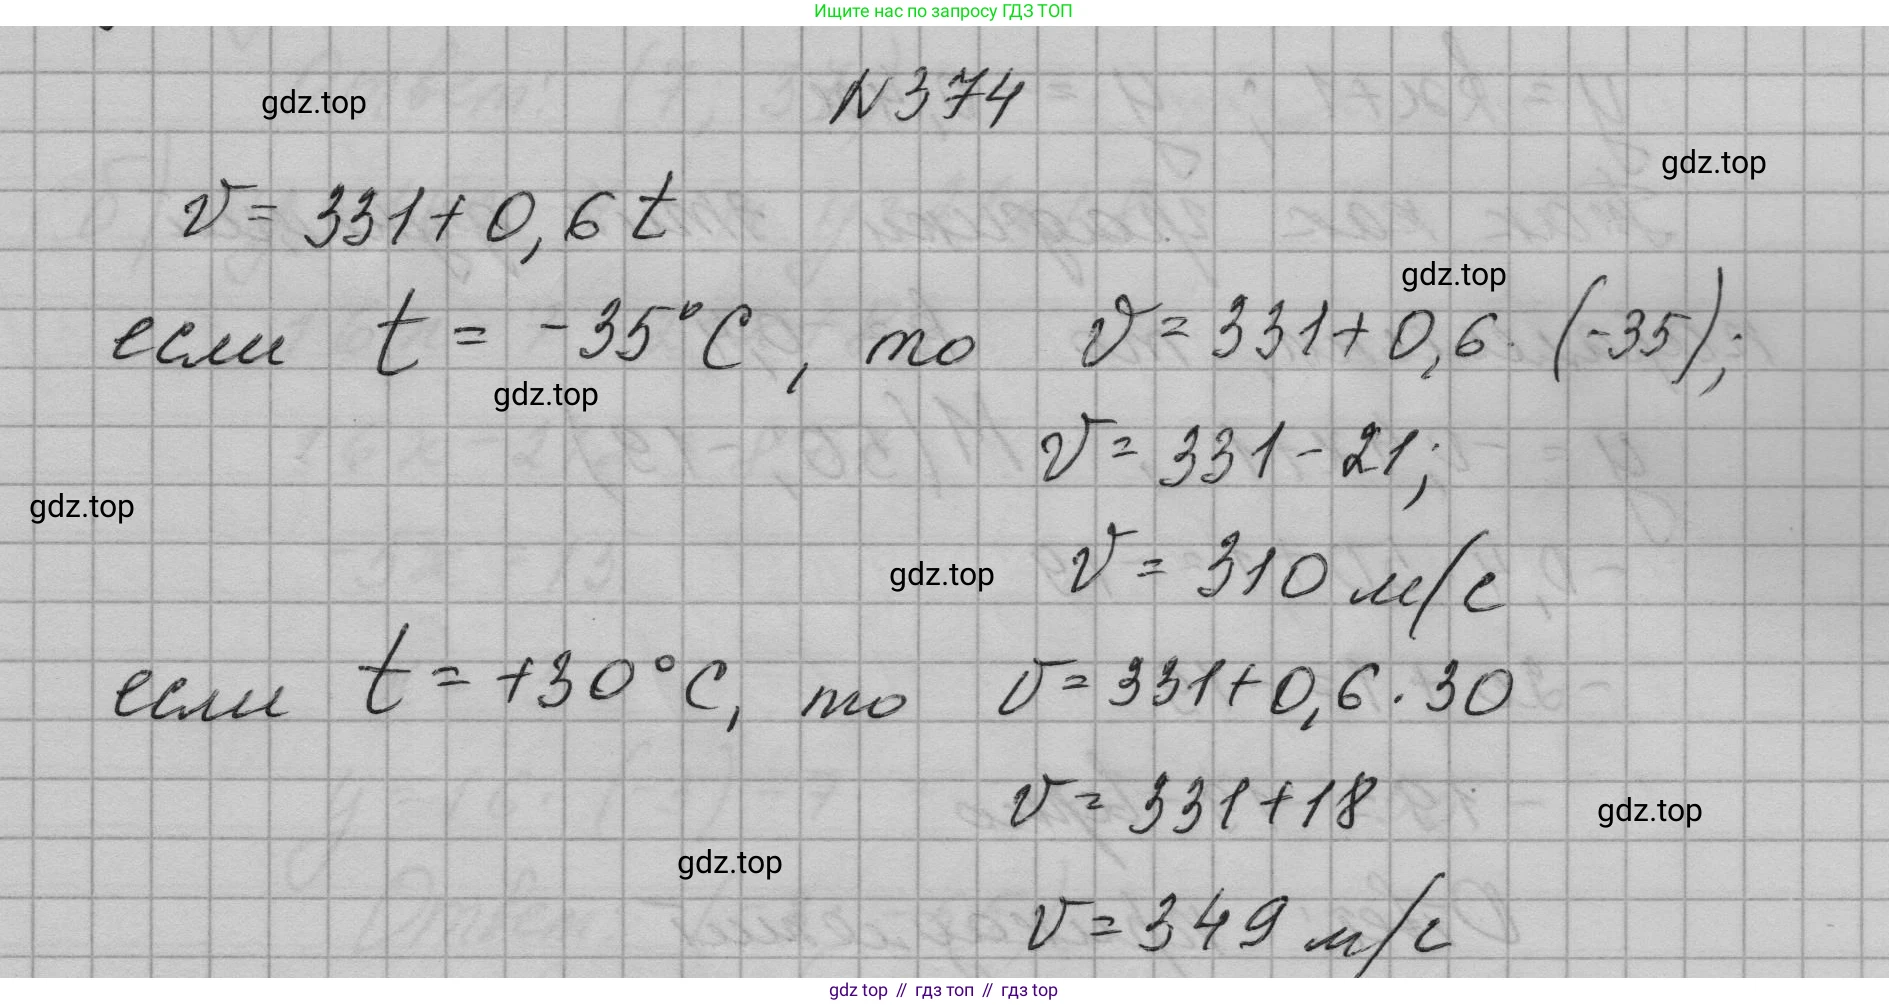 Ищите нас по запросу ГДЗ ТОП
N 374
gdz.top
gdz.top
v = 331 + 0,6 t
gdz.top
если t = -35°C, то v = 331 + 0,6 · (-35);
gdz.top
v = 331 - 21;
gdz.top
gdz.top
v = 310 м/с
если t = +30°C, то v = 331 + 0,6 · 30
v = 331 + 18
gdz.top
gdz.top
v = 349 м/с
gdz top // гдз топ // гдз top